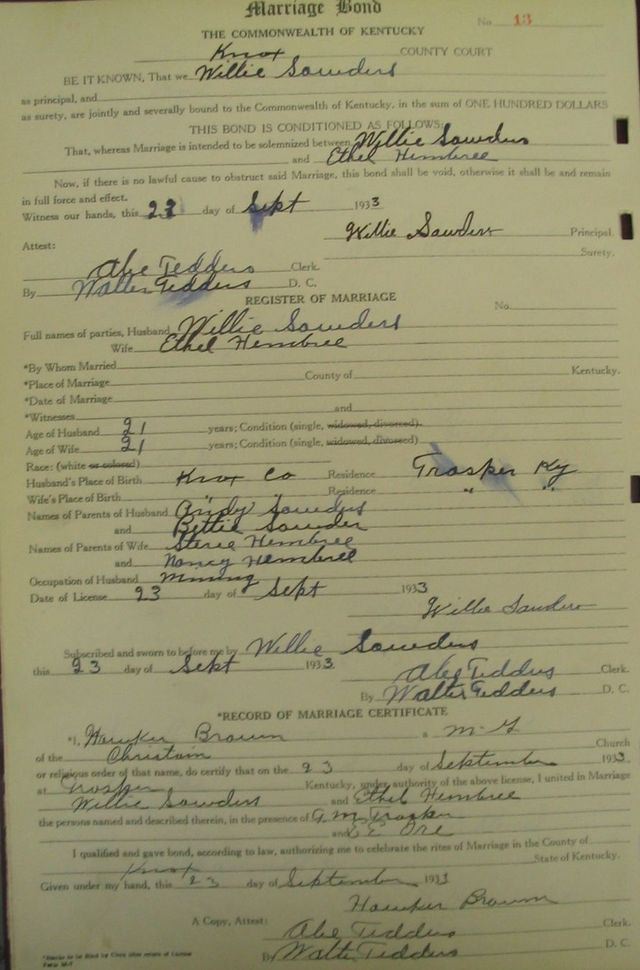 Marriage Bond
No. 13
THE COMMONWEALTH OF KENTUCKY
Knox COUNTY COURT
BE IT KNOWN, That we Willie Sawders
as principal, and
as surety, are jointly and severally bound to the Commonwealth of Kentucky, in the sum of ONE HUNDRED DOLLARS
THIS BOND IS CONDITIONED AS FOLLOWS:
That, whereas Marriage is intended to be solemnized between Willie Sawders
and Ethel Hembree
Now, if there is no lawful cause to obstruct said Marriage, this bond shall be void, otherwise it shall be and remain
in full force and effect.
Witness our hands, this 23 day of Sept 1933
Willie Sawders Principal.
Surety.
Attest:
Abe Tedders Clerk.
By Walter Tedders D. C.
REGISTER OF MARRIAGE
No.
Full names of parties, Husband Willie Sawders
Wife Ethel Hembree
*By Whom Married
*Place of Marriage County of Kentucky.
*Date of Marriage
*Witnesses and
Age of Husband 21 years; Condition (single, widowed, divorced).
Age of Wife 21 years; Condition (single, widowed, divorced)
Race: (white or colored)
Husband's Place of Birth Knox Co Residence Trosper Ky
Wife's Place of Birth " Residence " "
Names of Parents of Husband Andy Sawders
and Bettie Sawder
Names of Parents of Wife Steve Hembree
and Nancy Hembree
Occupation of Husband Mining
Date of License 23 day of Sept 1933
Willie Sawders
Subscribed and sworn to before me by Willie Sawders
this 23 day of Sept 1933.
Abe Tedders Clerk.
By Walter Tedders D. C.
*RECORD OF MARRIAGE CERTIFICATE
*I, Hawker Brown a M. G
of the Christain Church
or religious order of that name, do certify that on the 23 day of September 1933.
at Trosper Kentucky, under authority of the above license, I united in Marriage
Willie Sawders and Ethel Hembree
the persons named and described therein, in the presence of G. M. Trosper
and
I qualified and gave bond, according to law, authorizing me to celebrate the rites of Marriage in the County of
Knox State of Kentucky.
Given under my hand, this 23 day of September 1933
Hawker Brown
A Copy, Attest: Abe Tedders Clerk.
By Walter Tedders D. C.